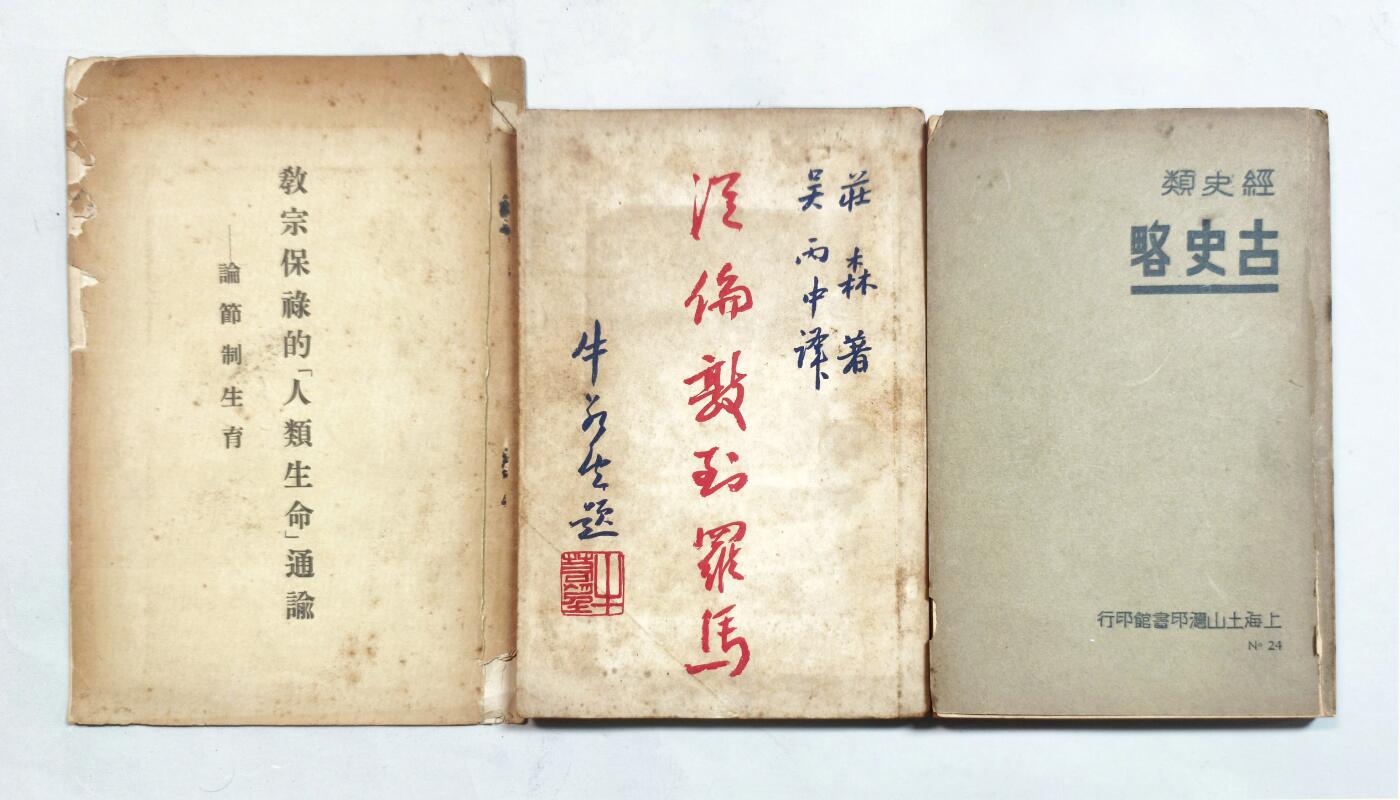 教宗保祿的「人類生命」通諭
——論節制生育
莊森著
吳丙中譯
從倫敦到羅馬
牛若望題
經史類
古史略
上海土山灣印書館印行
Nº 24